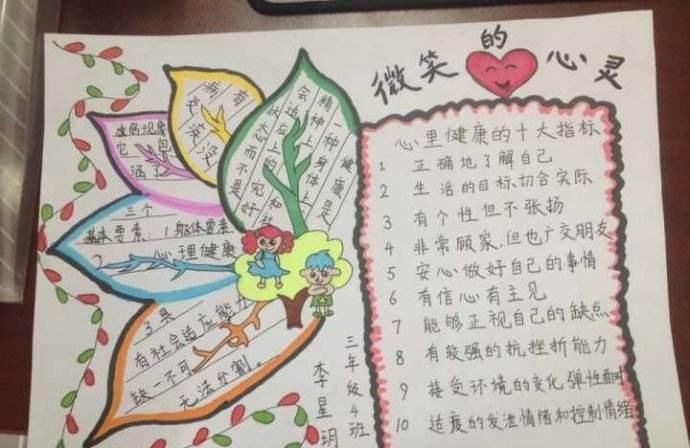 微笑的心灵
心里健康的十大指标
1 正确地了解自己
2 生活的目标,切合实际
3 有个性但不张扬
4 非常顾家,但也广交朋友
5 安心做好自己的事情
6 有信心有主见
7 能够正视自己的缺点
8 有较强的抗挫折能力
9 接受环境的变化弹性
10 适度的发泄情绪和控制情绪
健康是
一种身体上
精神上和社
会适应上的完好
状态而不是
没有
疾病
现象
它包
涵了
三个
基本要素:1 身体要素
2 心理健康
3 具
有社会适应能力
缺一不可
无法分割。
三年级4班
李星玥